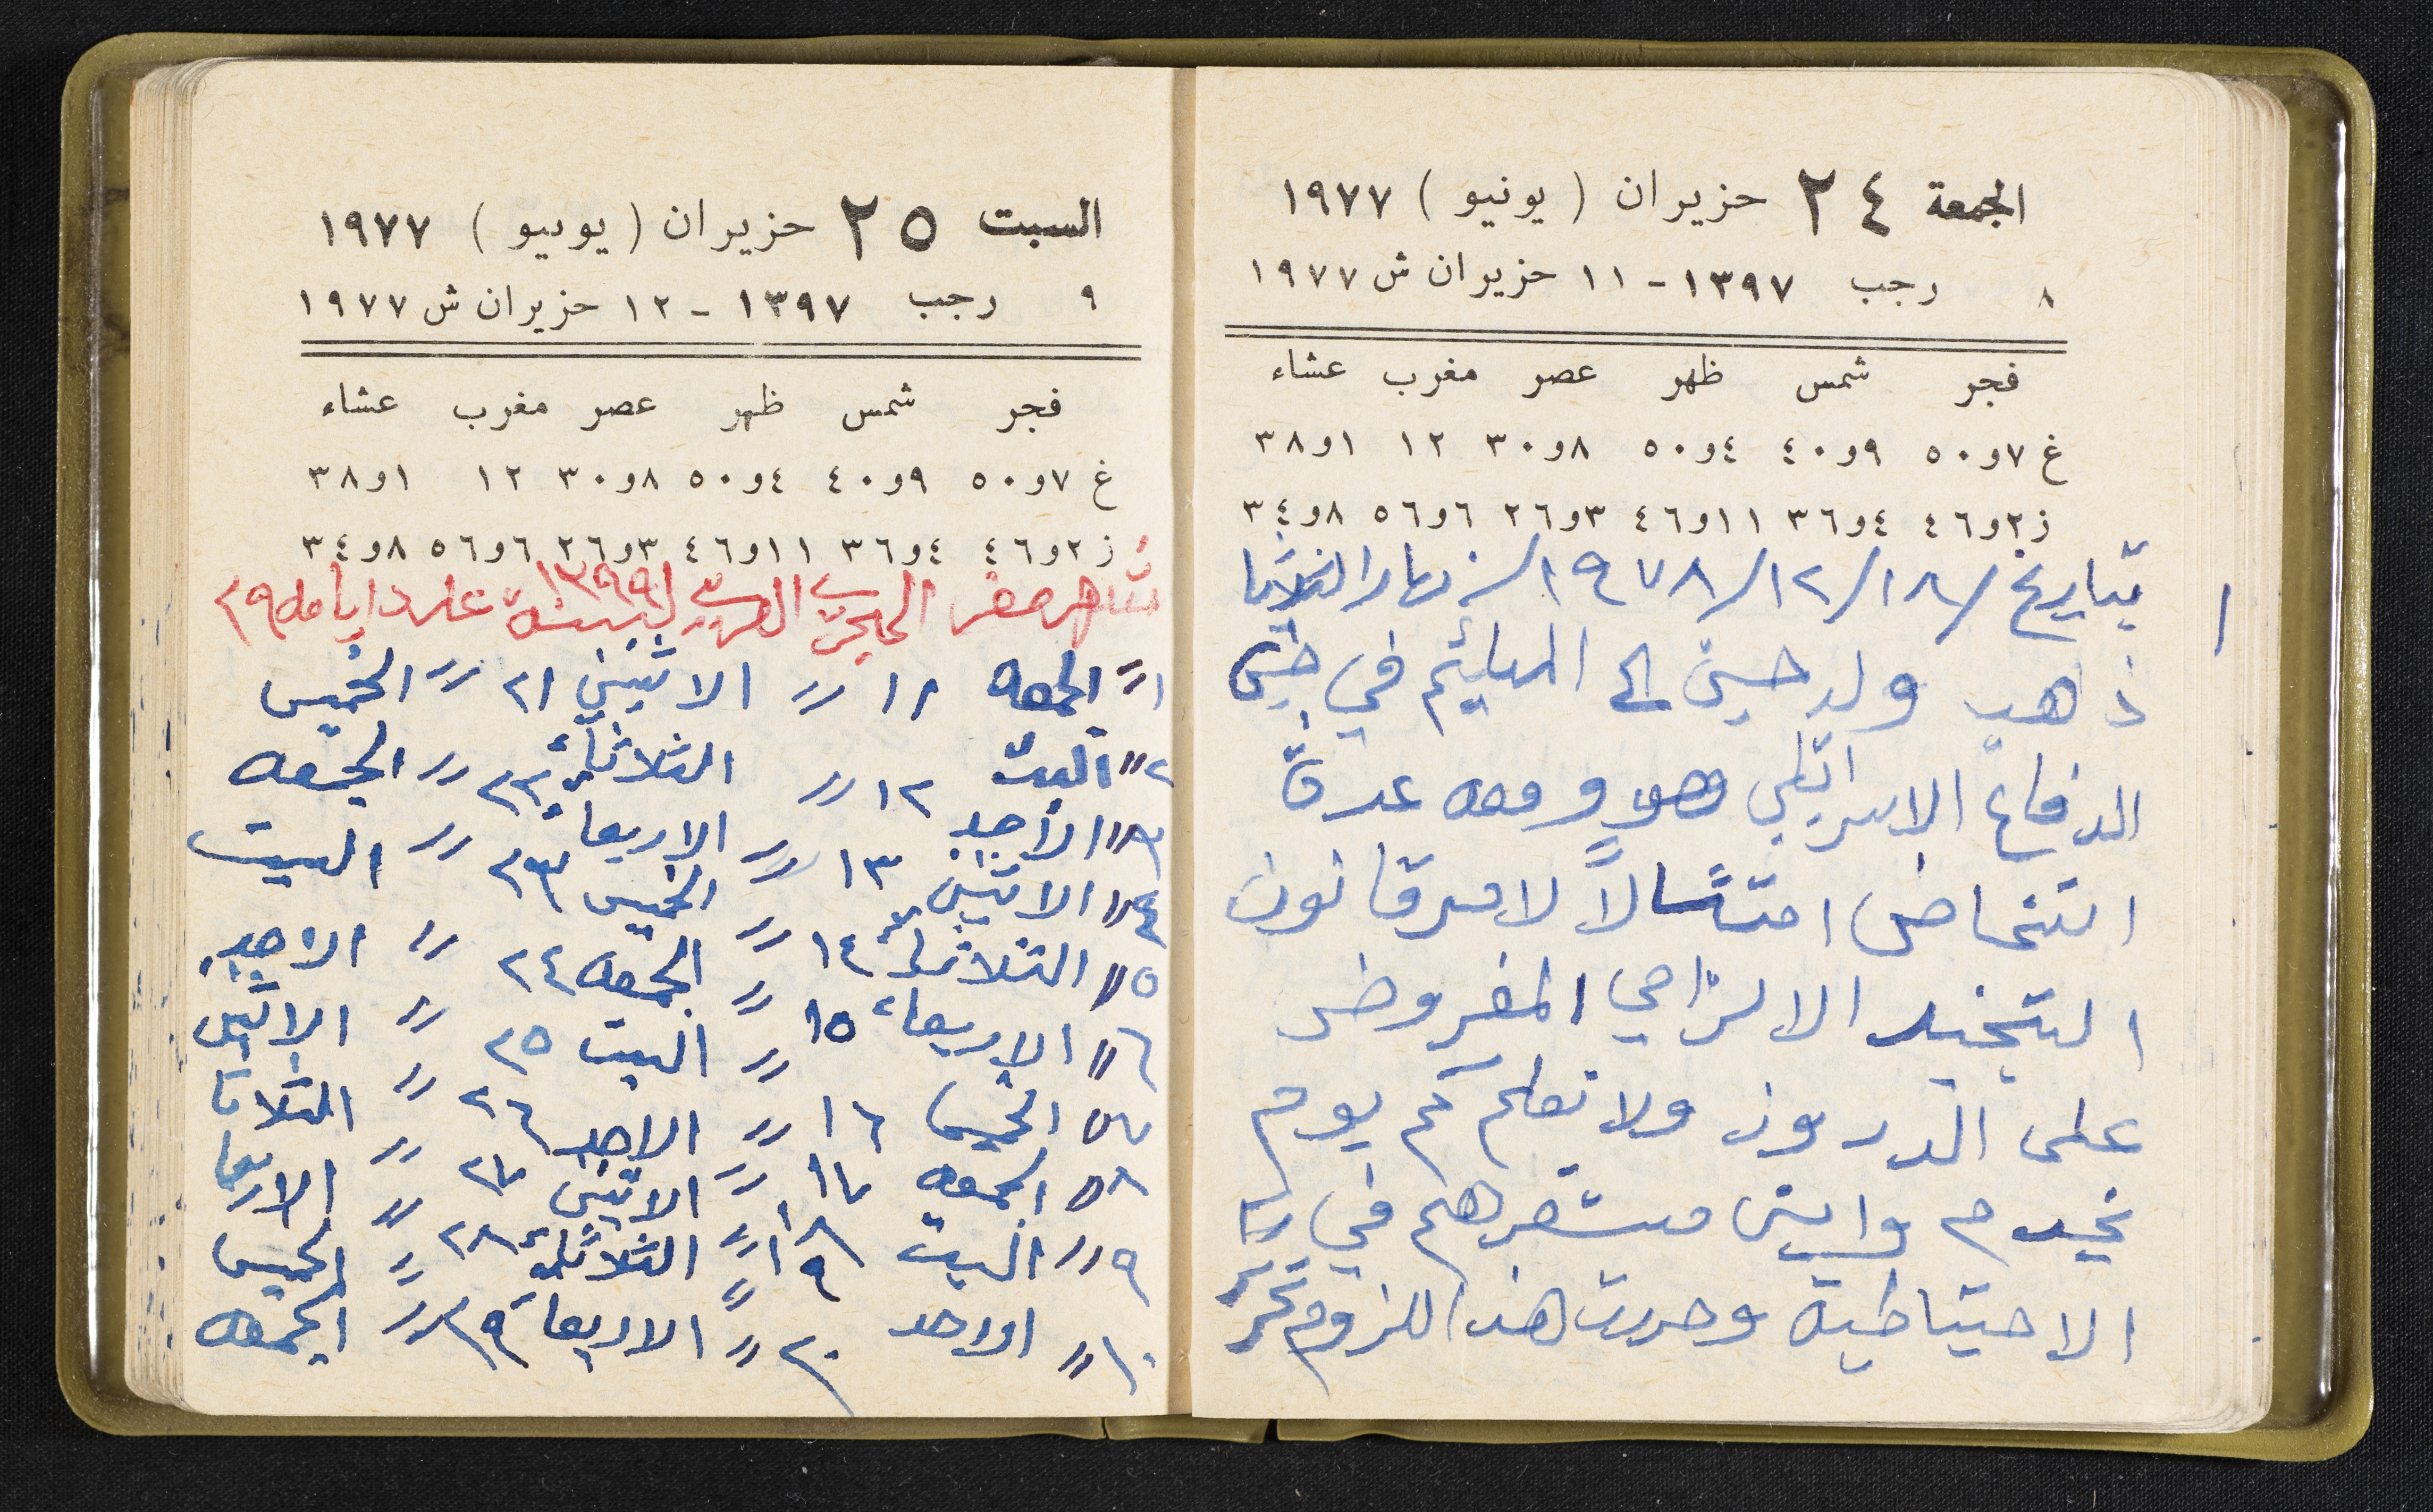 الجمعة ٢٤ حزيران ( يونيو ) ١٩٧٧
٨ رجب ١٣٩٧ - ١١ حزيران ش ١٩٧٧
فجر شمس ظهر عصر مغرب عشاء
غ ٧و٥٠ ٩و٤٠ ٤و٥٠ ٨و٣٠ ١٢ ١و٣٨
ز ٢و٤٦ ٤و٣٦ ١١و٤٦ ٣و٢٦ ٦و٥٦ ٨و٣٤
بتاريخ ١٨/١٢/١٩٧٨ نهار
ذهب ولد حسين الى في جيش
الدفاع الاسرائلي وهو ومعه عدة
اشخاص امتثالاً لامر قانون
التجنيد الالزامي المفروض
على الدروز ولا نعلم كم يوم
يخدم واين مستقرهم في
الاحتياطيه وحررت هذا للزوم
السبت ٢٥ حزيران ( يونيو ) ١٩٧٧
٩ رجب ١٣٩٧ - ١٢ حزيران ش ١٩٧٧
فجر شمس ظهر عصر مغرب عشاء
غ ٧و٥٠ ٩و٤٠ ٤و٥٠ ٨و٣٠ ١٢ ١و٣٨
ز ٢و٤٦ ٤و٣٦ ١١و٤٦ ٣و٢٦ ٦و٥٦ ٨و٣٤
شهر صفر الهجري العربي لسنة ١٣٩٩ عدد ايامه ٢٩
١ " الجمعه ١١ " الاثنين ٢١ " الخميس
٢ " السبت ١٢ " الثلاثاء ٢٢ " الجمعه
٣ " الأحد ١٣ " الاربعاء ٢٣ " السبت
٤ " الاثنين ١٤ " الخميس ٢٤ " الاحد
٥ " الثلاثاء ١٥ " الجمعه ٢٥ " الاثنين
٦ " الاربعاء ١٦ " السبت ٢٦ " الثلاثا
٧ " الخميس ١٧ " الاحد ٢٧ " الاربعا
٨ " الجمعه ١٨ " الاثنين ٢٨ " الخميس
٩ " السبت ١٩ " الثلاثاء ٢٩ " الجمعه
١٠ " الاحد ٢٠ " الاربعاء